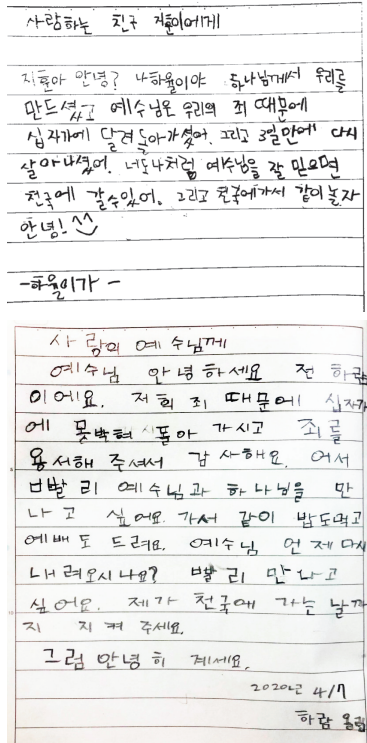 사랑하는 친구 지훈이에게
지훈아 안녕? 나 하율이야 하나님께서 우리를
만드셨고 예수님은 우리의 죄 때문에
십자가에 달려 돌아가셨어. 그리고 3일만에 다시
살아나셨어. 너도 나처럼 예수님을 잘 믿으면
천국에 갈 수 있어. 그리고 천국에 가서 같이 놀자
안녕! ^^
-하율이가-
사랑의 예수님께
예수님 안녕하세요 전 하람
이에요. 저희 죄 때문에 십자가
에 못박혀 돌아 가시고 죄를
용서해 주셔서 감사해요. 어서
빨리 예수님과 하나님을 만
나고 싶어요. 가서 같이 밥도먹고
예배도 드려요. 예수님 언제 다시
내려오시나요? 빨리 만나고
싶어요. 제가 천국에 가는 날까
지 지켜 주세요.
그럼 안녕히 계세요.
2020년 4/7
하람 올림